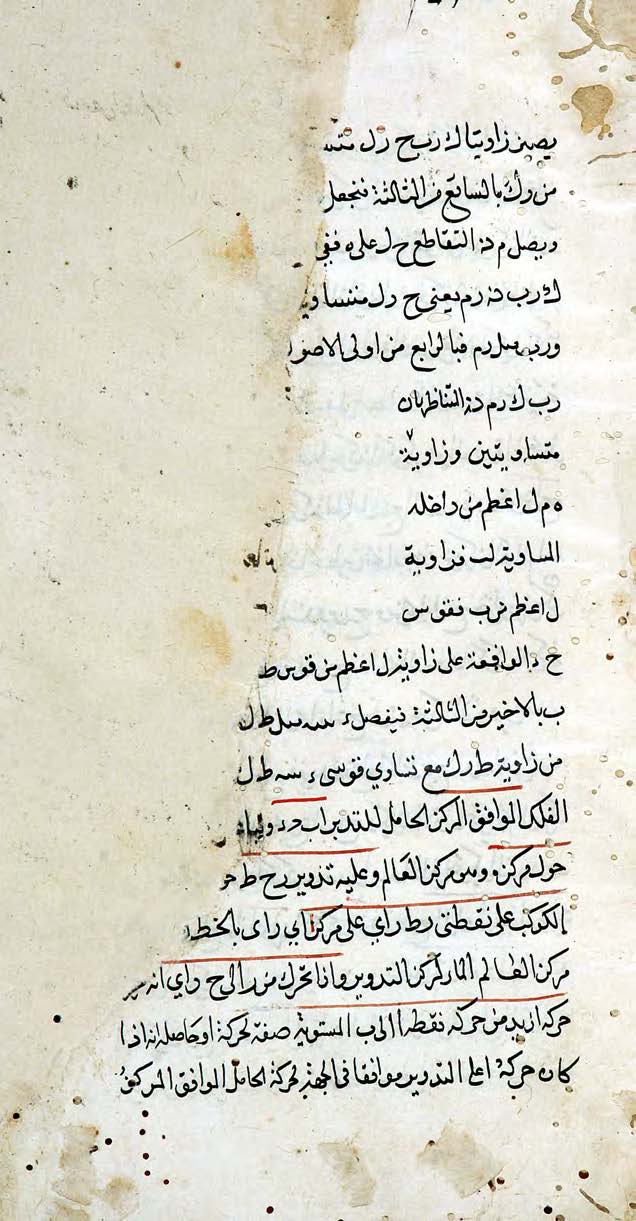 يصير زاويتا ك ر ب ح ر ل
من ر ك بالسابع من الثالثة فنجعل
ويصل م د التقاطع ح ل على ه ففي
ك ر ب د ر م يعنى ح ر ل متساو
ور م فبالرابع من اولى الاصو
ر ب ك ر م د المتناظران
متساويتين وزاوية
ه م ل اعظم من داخله
المساوية لب فزاوية
ل اعظم من ب فقوس
ح ء الواقعة على زاوية ل اعظم من قوس ط
ب بالاخير من الثالثة فيفصل ء سه ط ل
من زاوية ط ر ك مع تساوي قوسى ء سه ط ل
الفلك الموافق المركز الحامل للتدير ا ب ح د
حول مركز ه وهو مركز العالم وعليه تدوير ر ح ط
الكوكب على نقطتى ر ط راي على مركز اي راى بالخط
مركز العالم المار لمركز التدوير واذا تحرك من ر الى ح راي انه
حركة ازيد من حركه نقطه ا الى ب المستوية صفة لحركة ا وحاصله انه اذا
كان حركة اعلى التدوير موافقا فى الجهة لحركة الحامل الموافق المركز